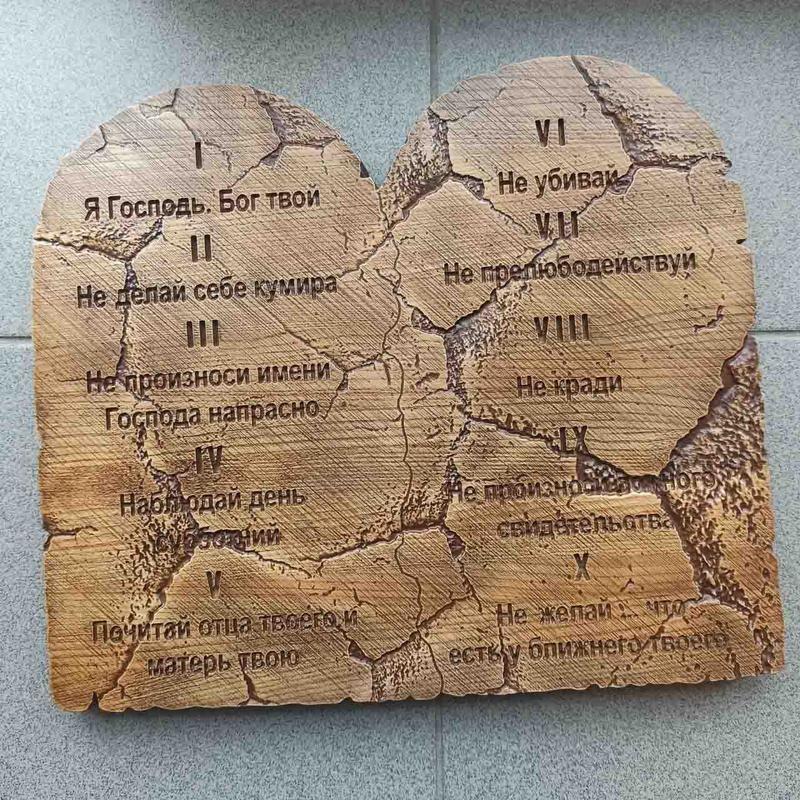 I
Я Господь. Бог твой
II
Не делай себе кумира
III
Не произноси имени
Господа напрасно
IV
Наблюдай день
субботний
V
Почитай отца твоего и
матерь твою
VI
Не убивай
VII
Не прелюбодействуй
VIII
Не кради
IX
Не произноси ложного
свидетельства
X
Не желай что
есть у ближнего твоего